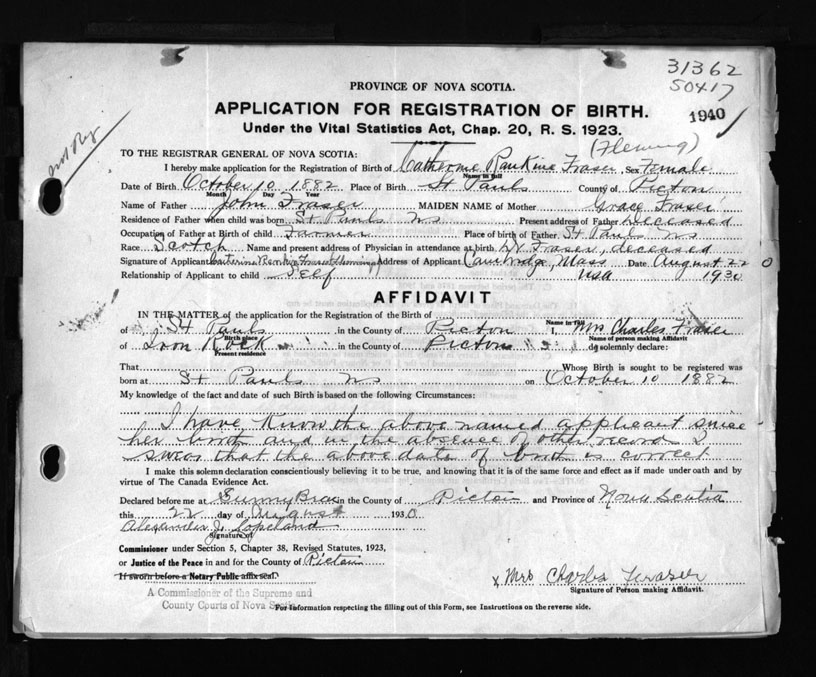 31362
50417
PROVINCE OF NOVA SCOTIA.
1940
APPLICATION FOR REGISTRATION OF BIRTH.
Under the Vital Statistics Act, Chap. 20, R. S. 1923.
(Fleming)
TO THE REGISTRAR GENERAL OF NOVA SCOTIA:
I hereby make application for the Registration of Birth of Catherine Rankine Fraser Sex Female
Name in full
Date of Birth October 10 1882 Place of Birth St Pauls County of Picton
Month Day Year
Name of Father John Fraser MAIDEN NAME of Mother Grace Fraser
Residence of Father when child was born St Pauls NS Present address of Father Deceased
Occupation of Father at Birth of child Farmer Place of birth of Father St Pauls NS
Race Scotch Name and present address of Physician in attendance at birth Dr Fraser, deceased
Signature of Applicant Address of Applicant Cambridge, Mass Date August 22
Relationship of Applicant to child Self USA 1930
AFFIDAVIT
IN THE MATTER of the application for the Registration of the Birth of
of St Pauls in the County of Picton I, Mrs Charles Fraser
Birth place Name in full
of Iron Rock in the County of Picton do solemnly declare:
Present residence Name of person making Affidavit
That Whose Birth is sought to be registered was
born at St Pauls NS on October 10 1882
My knowledge of the fact and date of such Birth is based on the following Circumstances:
I have know the above named applicant since
her birth and in the absence of other record I
swear that the above date of birth is correct
I make this solemn declaration conscientiously believing it to be true, and knowing that it is of the same force and effect as if made under oath and by
virtue of The Canada Evidence Act.
Declared before me at Sunny Brae in the County of Picton and Province of Nova Scotia
this 22 day of August 1930
Alexander J. Copeland
Signature of
Commissioner under Section 5, Chapter 38, Revised Statutes, 1923,
or Justice of the Peace in and for the County of Picton
If sworn before a Notary Public affix seal.
x Mrs Charles Fraser
Signature of Person making Affidavit.
A Commissioner of the Supreme and
County Courts of Nova Scotia
For information respecting the filling out of this Form, see Instructions on the reverse side.